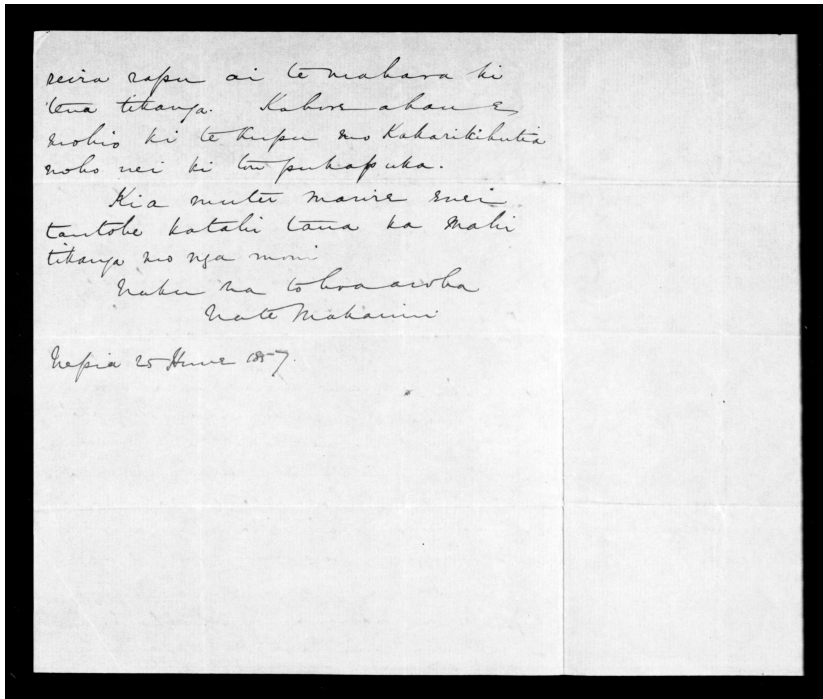 reira rapu ai te mahara ki
tena tikanga. Kahore ahau e
mohio ki te kupu mo Kakarikihutia
noho nei ki tou pukapuka.
Kia mutu marire enei
tautohe katahi taua ka mahi
tikanga mo nga moni
Naku na to hoa aroha
Na te Makarini
Nepia 25 Hune 1857.